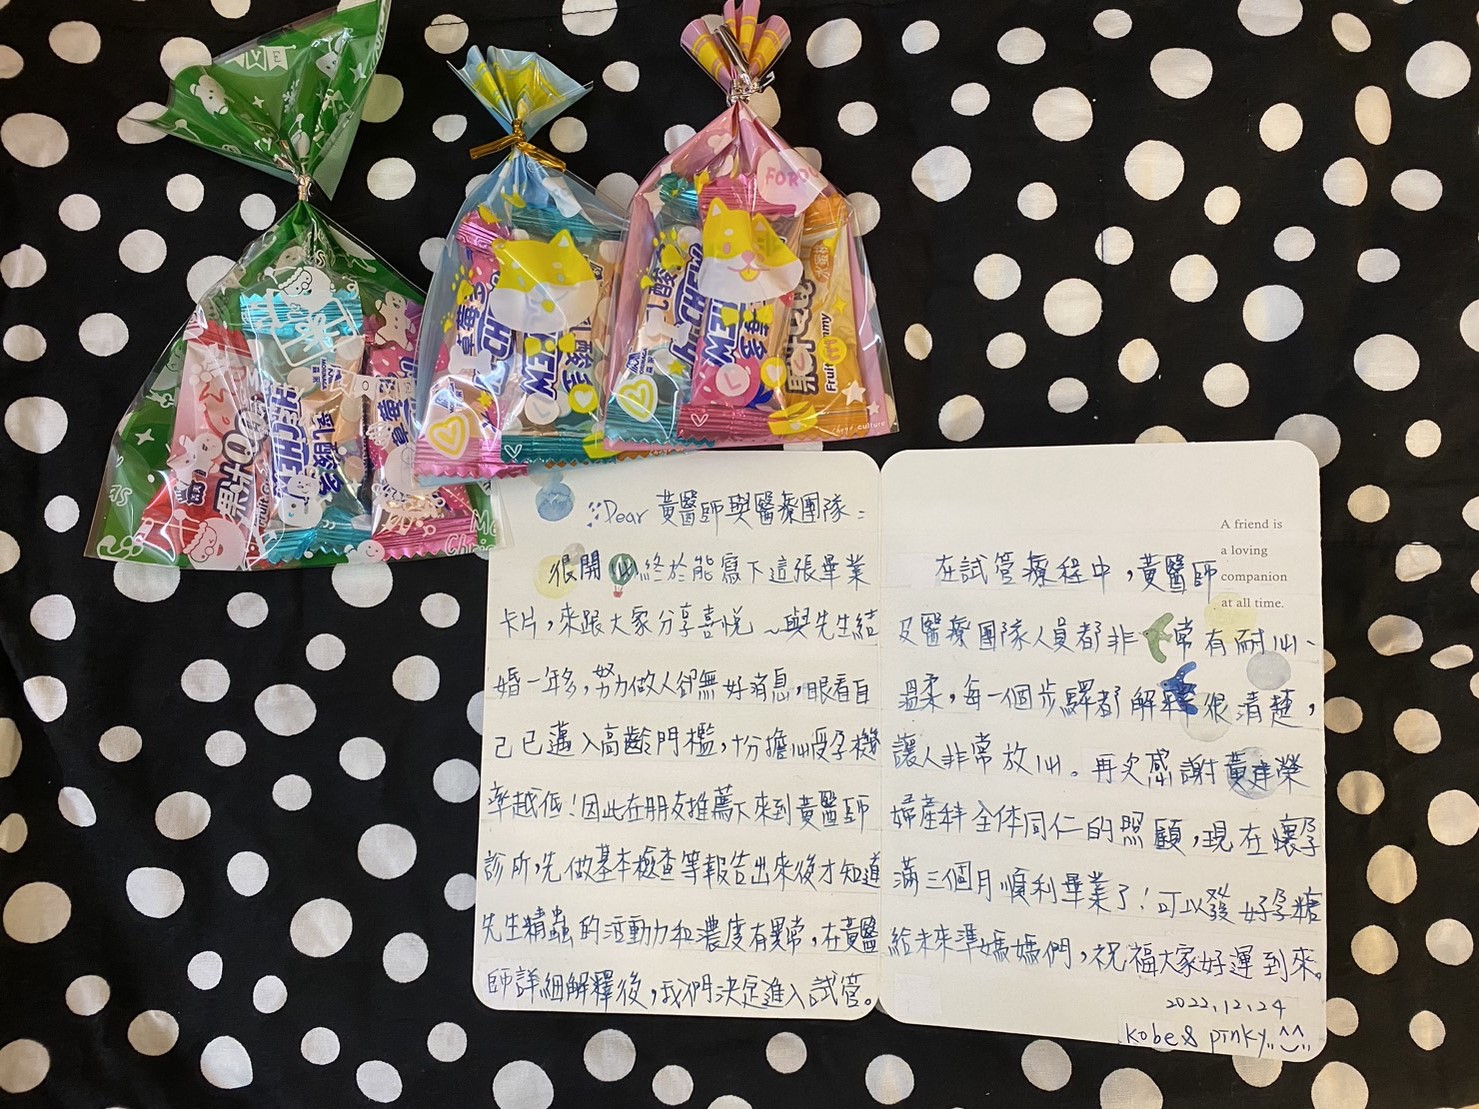 FORDU
草莓多
HI CHEW
乳酸多
HI CHEW
草莓多
果汁
水蜜桃
Fruit Gummy
HI CHEW
乳酸多
草莓多
糖
Me
Chris
Dear 黃醫師與醫療團隊：
很開心終於能寫下這張畢業
卡片，來跟大家分享喜悅～與先生結
婚一年多，努力做人卻無好消息，眼看自
己已邁入高齡門檻，十分擔心受孕機
率越低！因此在朋友推薦下來到黃醫師
診所，先做基本檢查等報告出來後才知道
先生精蟲的活動力和濃度有異常，在黃醫
師詳細解釋後，我們決定進入試管。
A friend is
a loving
companion
at all time.
在試管療程中，黃醫師
及醫療團隊人員都非常有耐心、
溫柔，每一個步驟都解釋很清楚，
讓人非常放心。再次感謝黃建榮
婦產科全体同仁的照顧，現在懷孕
滿三個月順利畢業了！可以發好孕糖
給未來準媽媽們，祝福大家好運到來。
2022.12.24
kobe & pinky